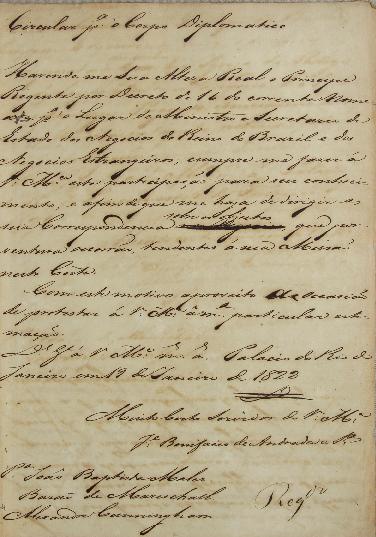 Circular pª o Corpo Diplomatico
Havendo me Sua Alteza Real o Principe
Regente por Decreto de 16 do corrente Nome-
ado pª o Lugar de Ministro e Secretario de
Estado dos Negocios do Reino do Brazil e dos
Negocios Estrangeiros, cumpre me fazer à
V. Mce esta participação para seu conheci-
mento, e afim de que me haja de dirigir as
sobre objectos
sua Correspondencia que por-
ventura occorrão, tendentes á sua
nesta Corte.
Com este motivo aproveito a occasião
de protestar à V. Mce a mª particular esti-
mação.
Ds Gde a V. Mce ms as Palacio do Rio de
Janeiro em 19 de Janeiro de 1822
Muito Certo Servidor de V. Mce
Je Bonifacio de Andrada e Sa
pª João Baptista Maler
Barão de Mareschall
Alexandre Cunningham
Regda